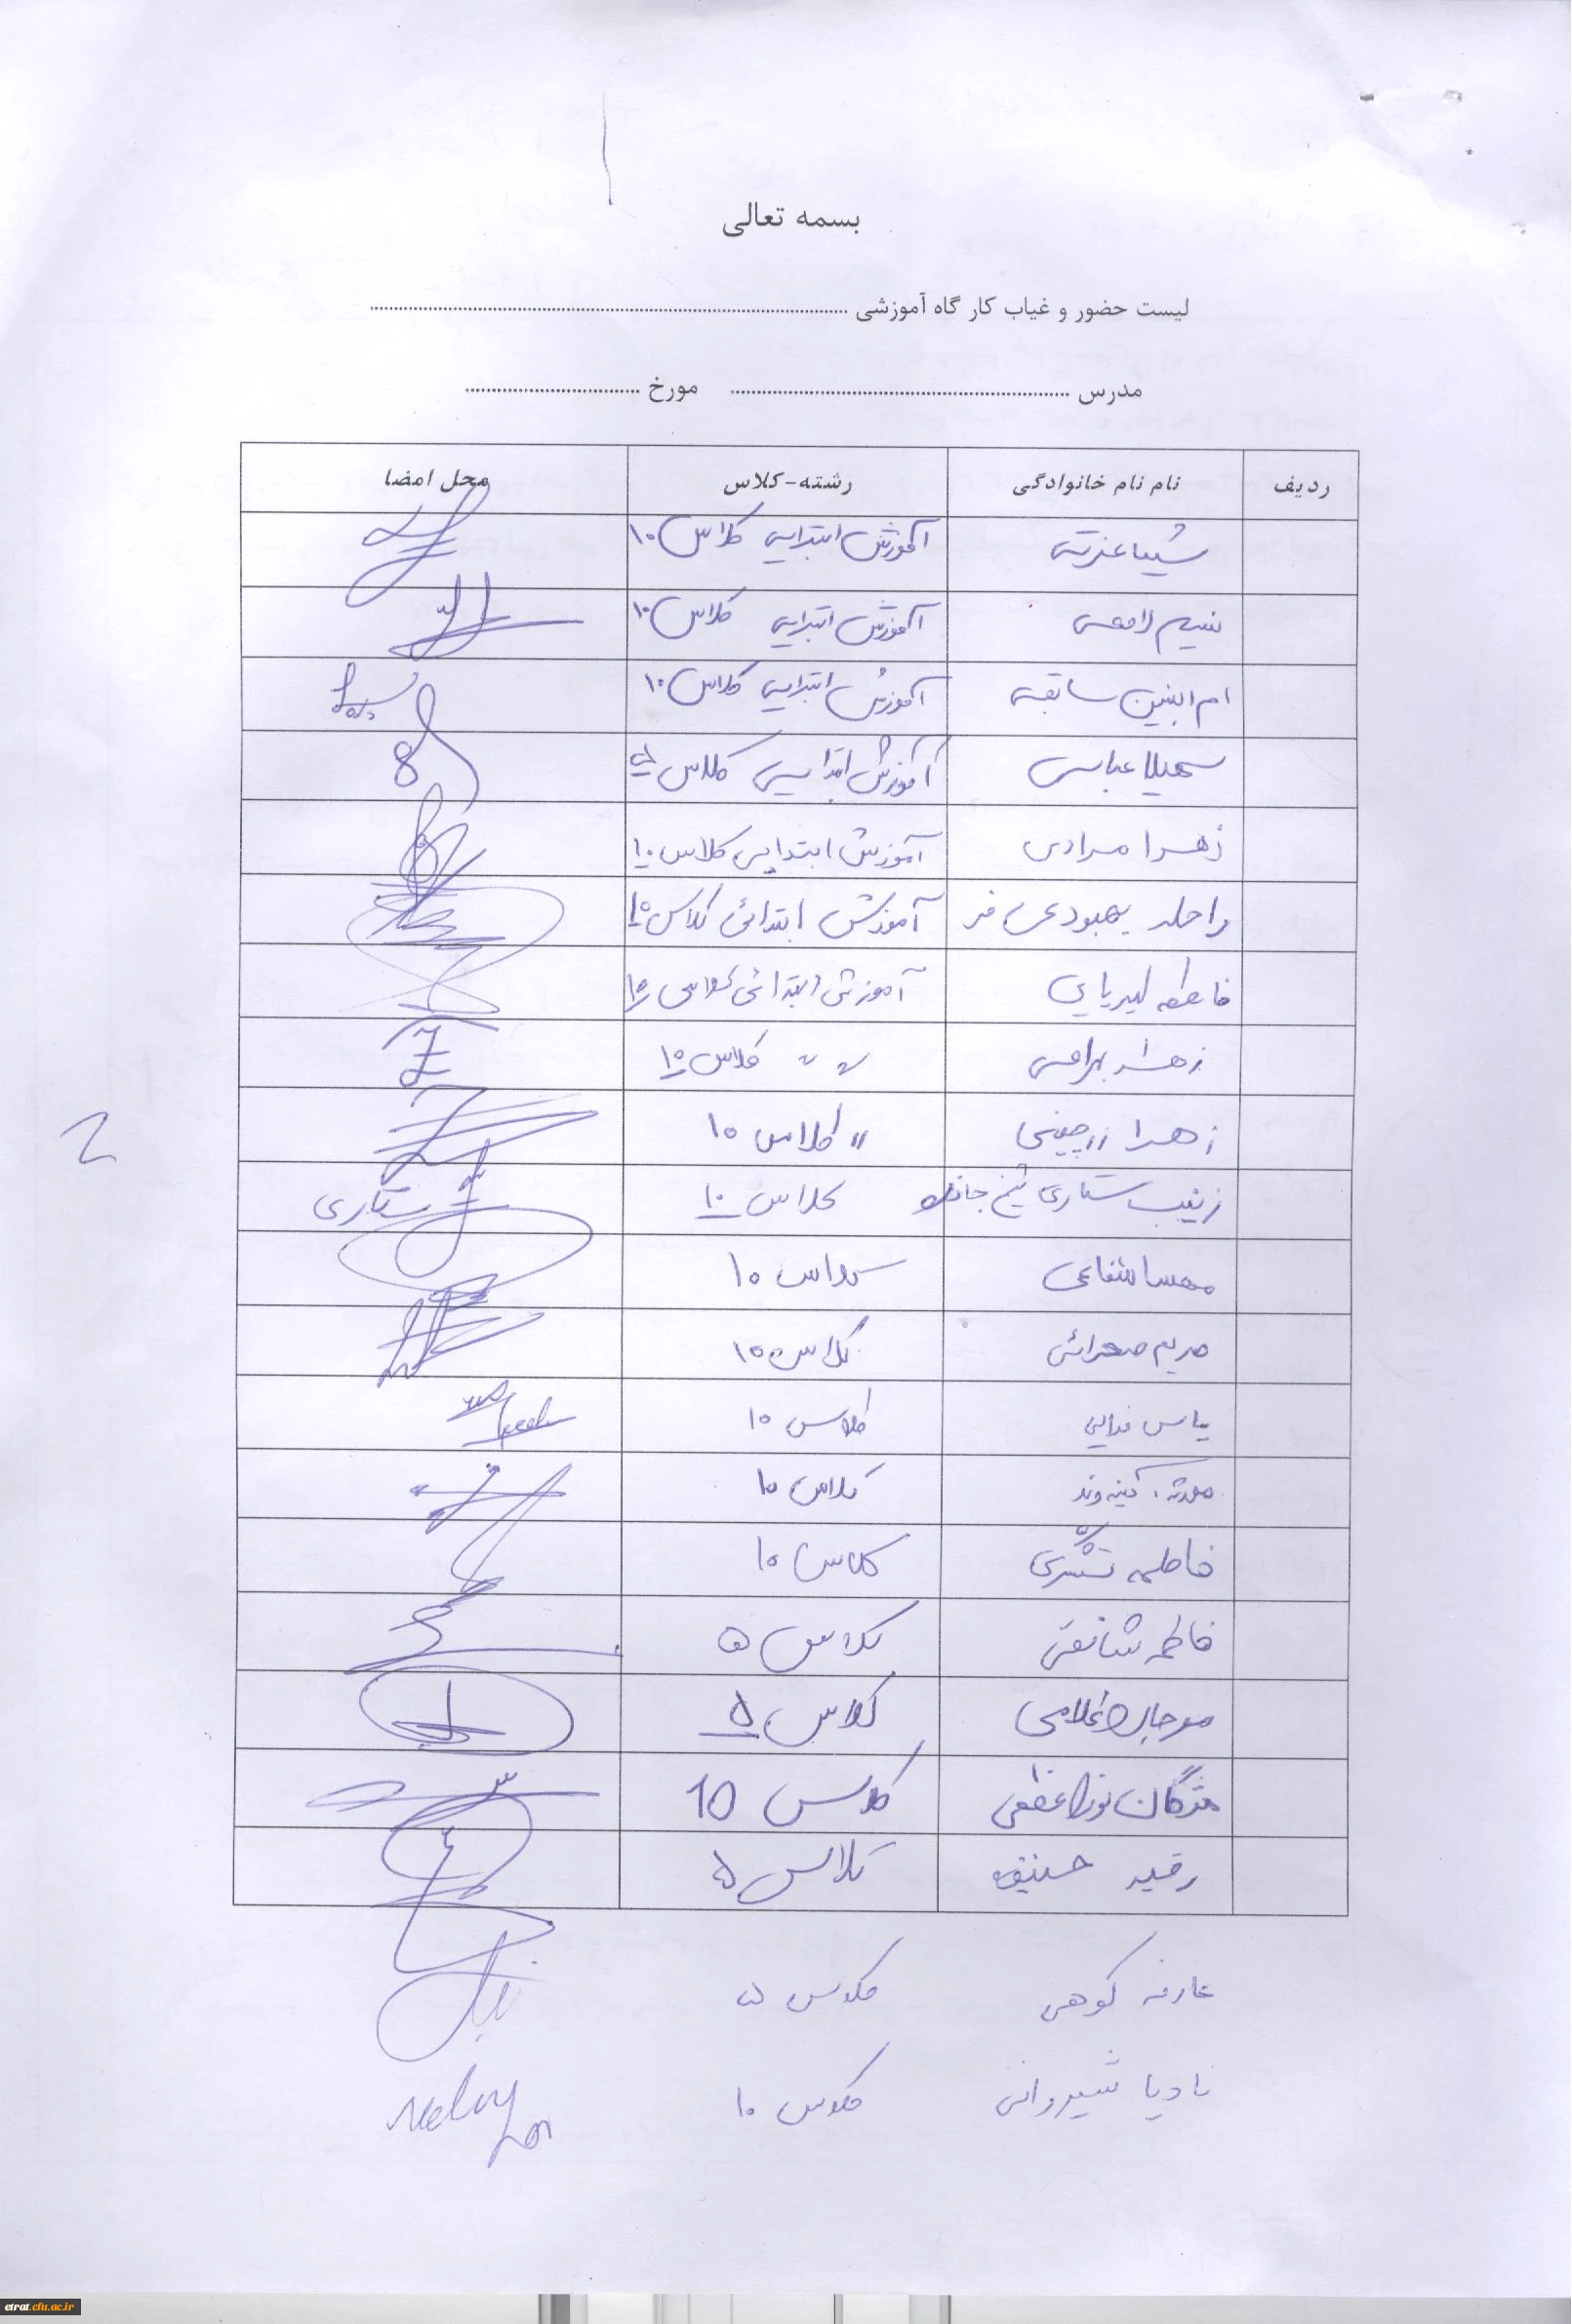 بسمه تعالی
لیست حضور و غیاب کار گاه آموزشی
مدرس مورخ
ردیف نام نام خانوادگی رشته-کلاس محل امضا
شیبا آموزش ابتدایی کلاس ۱۰
نسیم آموزش ابتدایی کلاس ۱۰
ام البنین سابقی آموزش ابتدایی کلاس ۱۰
سهیلا عباسی آموزش ابتدایی کلاس ۵
زهرا مرادی آموزش ابتدایی کلاس ۱۰
راحله بهبودی فر آموزش ابتدائی کلاس ۱۰
فاطمه آموزش ابتدائی کلاس ۱۰
زهرا بهرامی " " کلاس ۱۰
زهرا زرچینی " کلاس ۱۰
زینب ستاری کلاس ۱۰ ستاری
2
مهسا شفاعی کلاس ۱۰
مریم صحرائی کلاس ۱۰
یاس فدایی کلاس ۱۰
کلاس ۱۰
فاطمه کلاس ۱۰
فاطمه کلاس ۵
غلامی کلاس ۵
مژگان کلاس 10
رقیه کلاس ۵
عارفه کوهی کلاس ۵
نادیا شیروانی کلاس ۱۰
etrat.cfu.ac.ir